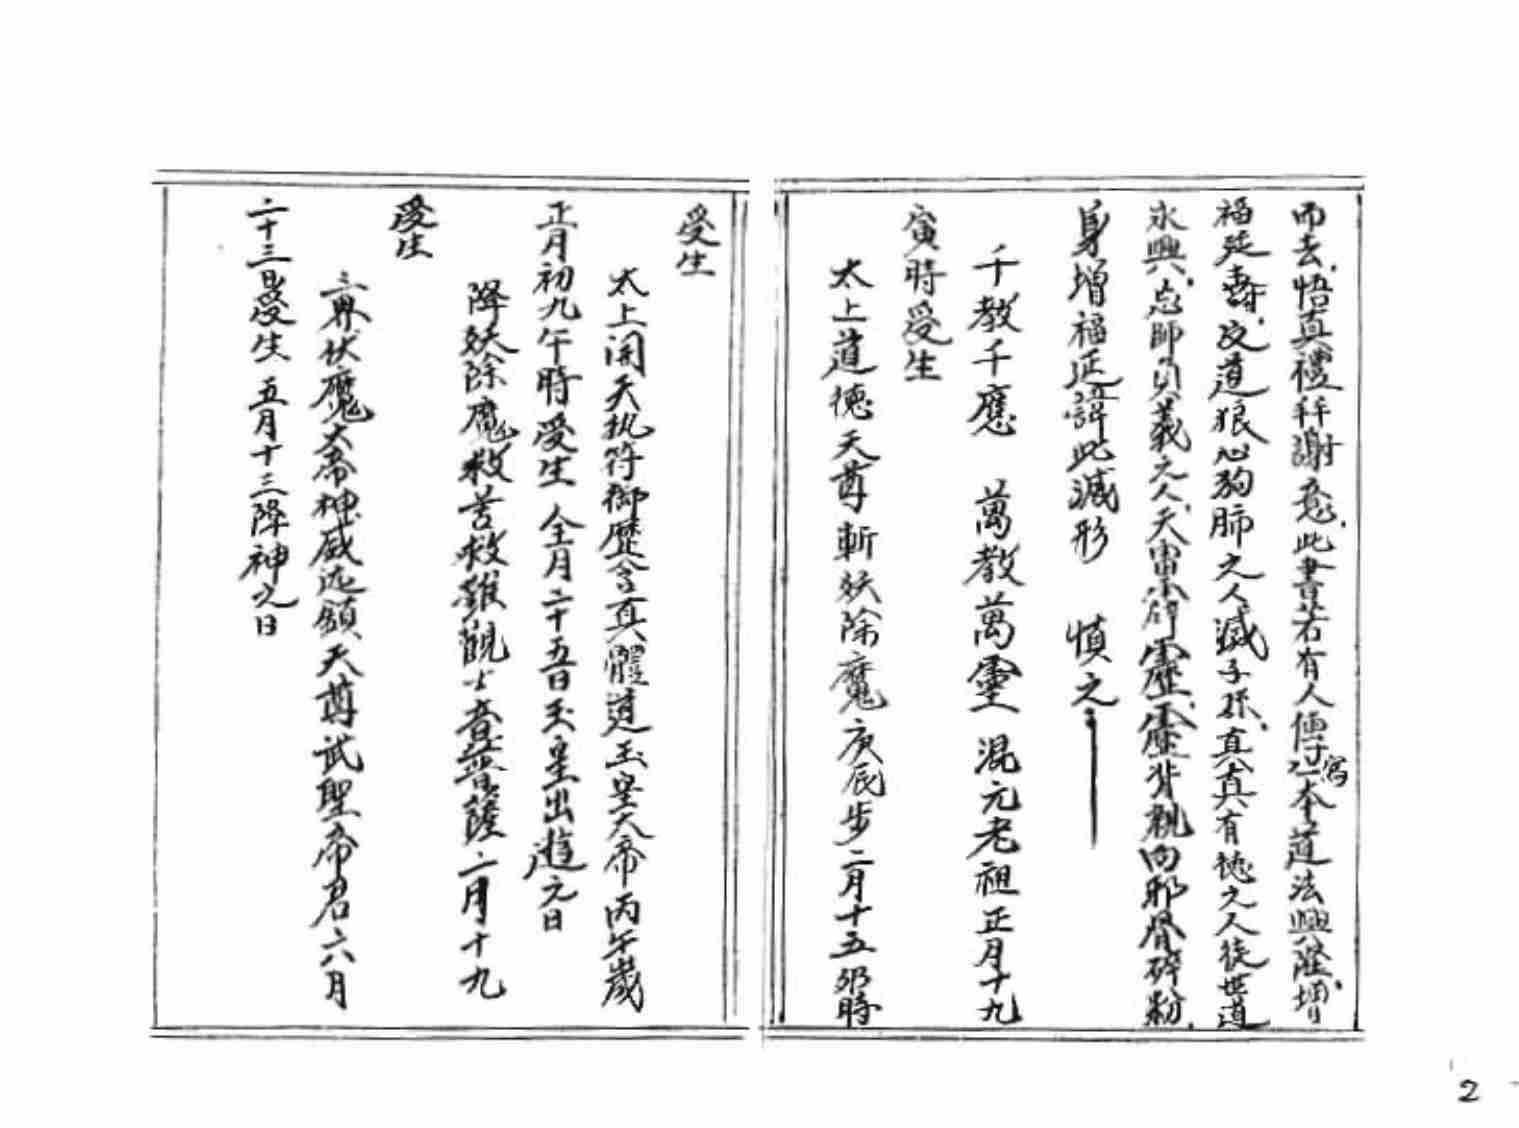 而去悟真禮拜謝恩此書若有人傳寫一本道法興隆增
福延壽反道狼心狗肺之人滅子孫真真有德之人徒世道
永興忘師負義之人天雷霹靂背親向邪骨碎粉
身增福延諱此滅形 慎之
千教千應 萬教萬靈 混元老祖正月十九
寅時受生
太上道德天尊斬妖除魔庚辰步二月十五卯時
受生
太上開天执符御歷含真體道玉皇大帝丙午歲
正月初九午時受生 仝月二十五日玉皇出遊之日
降妖除魔救苦救難觀士音菩薩二月十九
受生
三界伏魔大帝神威远鎮天尊武聖帝君六月
二十三日受生 五月十三降神之日
2